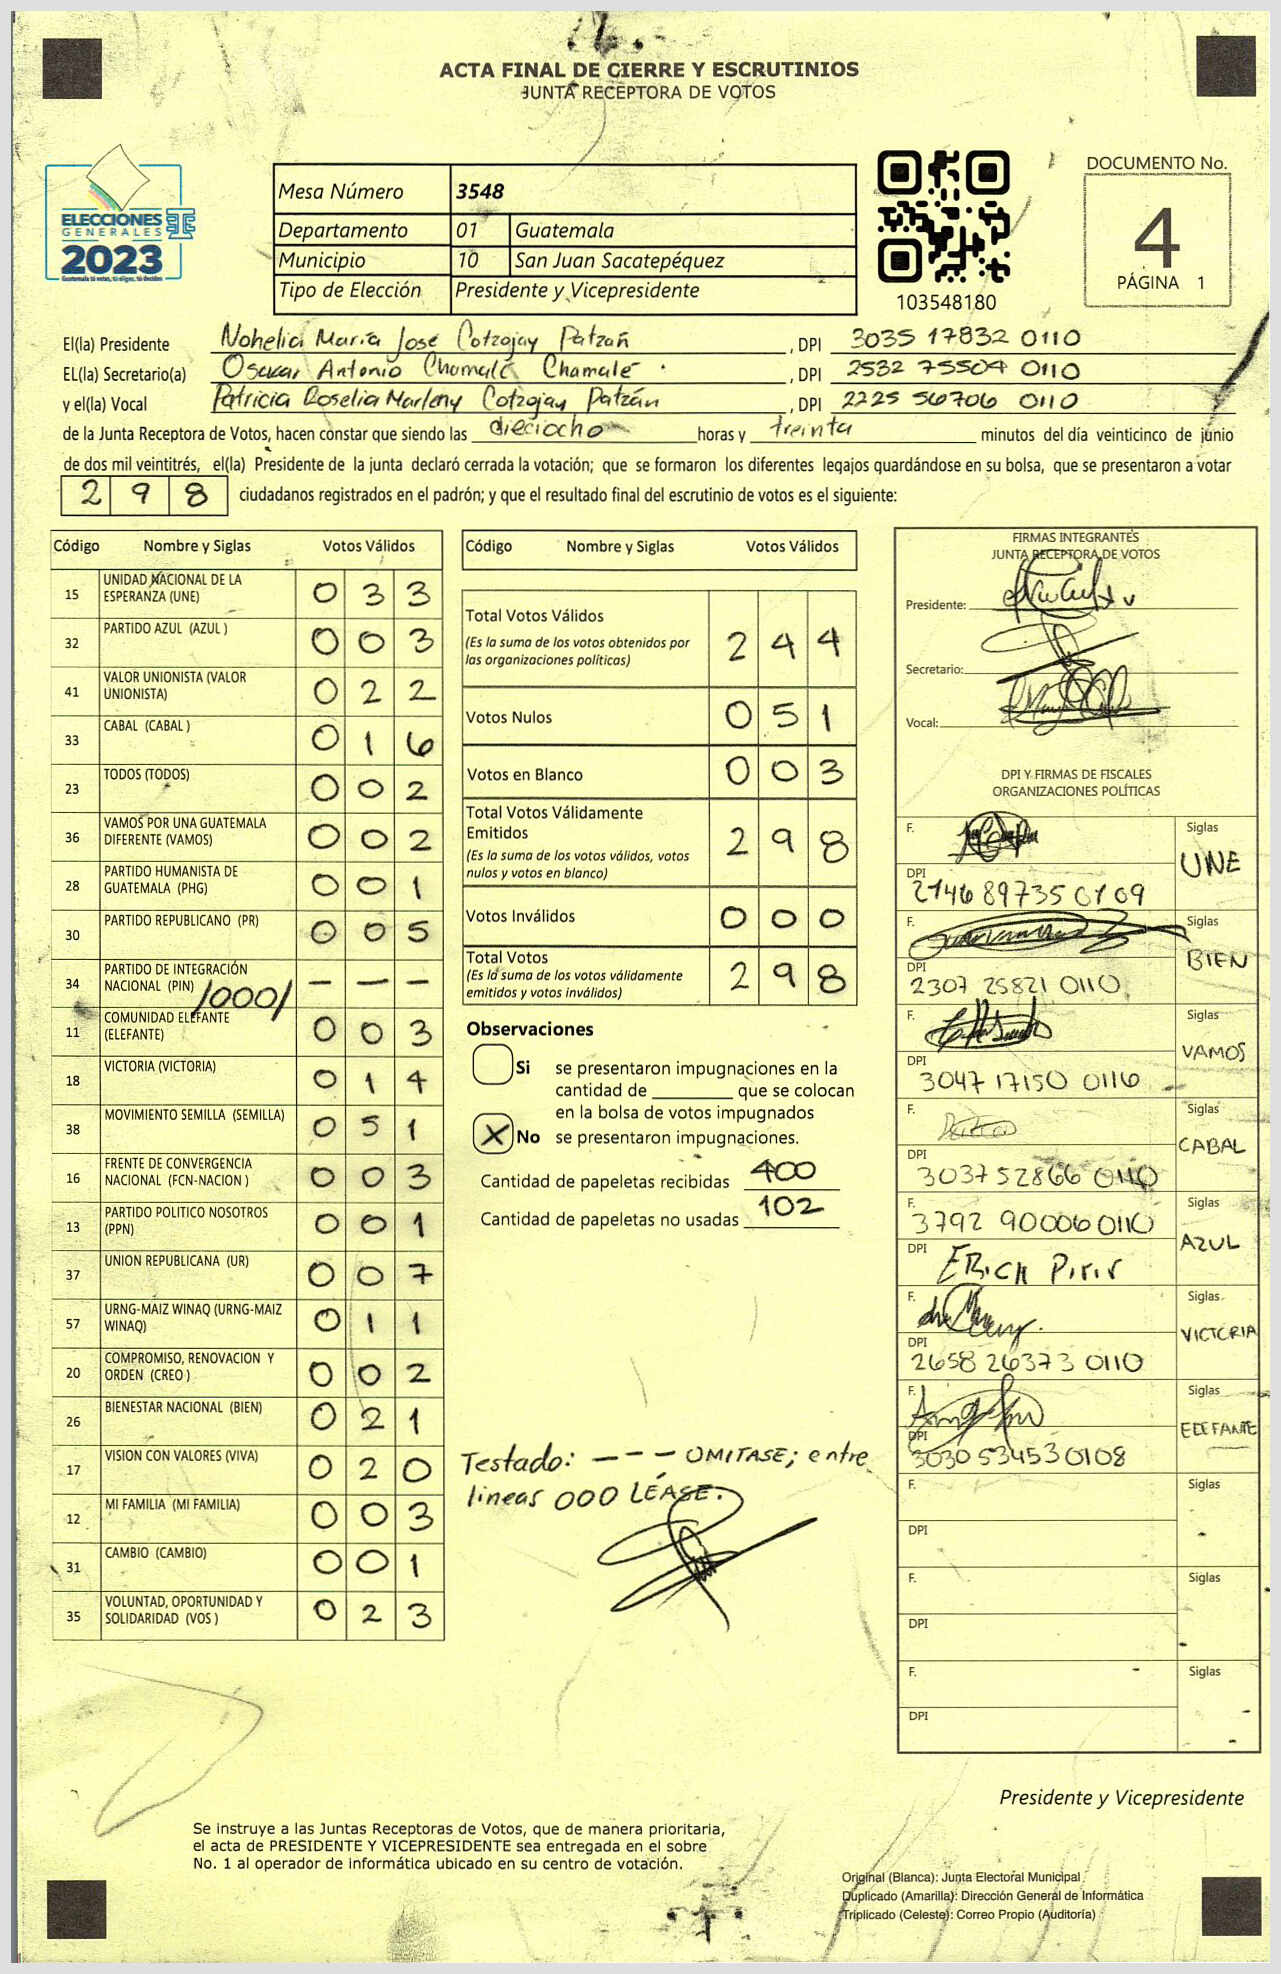 ACTA FINAL DE CIERRE Y ESCRUTINIOS
JUNTA RECEPTORA DE VOTOS
ELECCIONES
GENERALES
2023
Guatemala tú votas, tú eliges, tú decides
Mesa Número 3548
Departamento 01 Guatemala
Municipio 10 San Juan Sacatepéquez
Tipo de Elección Presidente y Vicepresidente
103548180
DOCUMENTO No.
4
PÁGINA 1
El(la) Presidente Nohelia María José Cotzojay Patzán , DPI 3035 17832 0110
EL(la) Secretario(a) Oscar Antonio Chamalé Chamalé , DPI 2532 75504 0110
y el(la) Vocal Patricia Roselia Marleny Cotzojay Patzán , DPI 2225 56706 0110
de la Junta Receptora de Votos, hacen constar que siendo las dieciocho horas y treinta minutos del día veinticinco de junio
de dos mil veintitrés, el(la) Presidente de la junta declaró cerrada la votación; que se formaron los diferentes legajos guardándose en su bolsa, que se presentaron a votar
298 ciudadanos registrados en el padrón; y que el resultado final del escrutinio de votos es el siguiente:
Código Nombre y Siglas Votos Válidos
15 UNIDAD NACIONAL DE LA
ESPERANZA (UNE) 0 3 3
32 PARTIDO AZUL (AZUL ) 0 0 3
41 VALOR UNIONISTA (VALOR
UNIONISTA) 0 2 2
33 CABAL (CABAL ) 0 1 6
23 TODOS (TODOS) 0 0 2
36 VAMOS POR UNA GUATEMALA
DIFERENTE (VAMOS) 0 0 2
28 PARTIDO HUMANISTA DE
GUATEMALA (PHG) 0 0 1
30 PARTIDO REPUBLICANO (PR) 0 0 5
34 PARTIDO DE INTEGRACIÓN
NACIONAL (PIN) /000/ – – –
11 COMUNIDAD ELEFANTE
(ELEFANTE) 0 0 3
18 VICTORIA (VICTORIA) 0 1 4
38 MOVIMIENTO SEMILLA (SEMILLA) 0 5 1
16 FRENTE DE CONVERGENCIA
NACIONAL (FCN-NACION ) 0 0 3
13 PARTIDO POLITICO NOSOTROS
(PPN) 0 0 1
37 UNION REPUBLICANA (UR) 0 0 7
57 URNG-MAIZ WINAQ (URNG-MAIZ
WINAQ) 0 1 1
20 COMPROMISO, RENOVACION Y
ORDEN (CREO ) 0 0 2
26 BIENESTAR NACIONAL (BIEN) 0 2 1
17 VISION CON VALORES (VIVA) 0 2 0
12 MI FAMILIA (MI FAMILIA) 0 0 3
31 CAMBIO (CAMBIO) 0 0 1
35 VOLUNTAD, OPORTUNIDAD Y
SOLIDARIDAD (VOS ) 0 2 3
Código Nombre y Siglas Votos Válidos
Total Votos Válidos
(Es la suma de los votos obtenidos por
las organizaciones políticas) 2 4 4
Votos Nulos 0 5 1
Votos en Blanco 0 0 3
Total Votos Válidamente
Emitidos
(Es la suma de los votos válidos, votos
nulos y votos en blanco) 2 9 8
Votos Inválidos 0 0 0
Total Votos
(Es la suma de los votos válidamente
emitidos y votos inválidos) 2 9 8
Observaciones
Si se presentaron impugnaciones en la
cantidad de ________ que se colocan
en la bolsa de votos impugnados
X No se presentaron impugnaciones.
Cantidad de papeletas recibidas 400
Cantidad de papeletas no usadas 102
Testado: – – – OMITASE; entre
lineas 000 LÉASE.
FIRMAS INTEGRANTES
JUNTA RECEPTORA DE VOTOS
Presidente:
Secretario:
Vocal:
DPI Y FIRMAS DE FISCALES
ORGANIZACIONES POLÍTICAS
F. Siglas
UNE
DPI
2746 89735 0109
F. Siglas
BIEN
DPI
2307 25821 0110
F. Siglas
VAMOS
DPI
3047 17150 0116
F. Siglas
CABAL
DPI
3037 52866 0110
F. Siglas
3792 90006 0110
AZUL
DPI ERICK Pirir
F. Siglas
VICTORIA
DPI
2658 26373 0110
F. Siglas
ELEFANTE
DPI
3030 53453 0108
F. Siglas
DPI
F. Siglas
DPI
F. Siglas
DPI
Presidente y Vicepresidente
Se instruye a las Juntas Receptoras de Votos, que de manera prioritaria,
el acta de PRESIDENTE Y VICEPRESIDENTE sea entregada en el sobre
No. 1 al operador de informática ubicado en su centro de votación.
Original (Blanca): Junta Electoral Municipal
Duplicado (Amarilla): Dirección General de Informática
Triplicado (Celeste): Correo Propio (Auditoría)